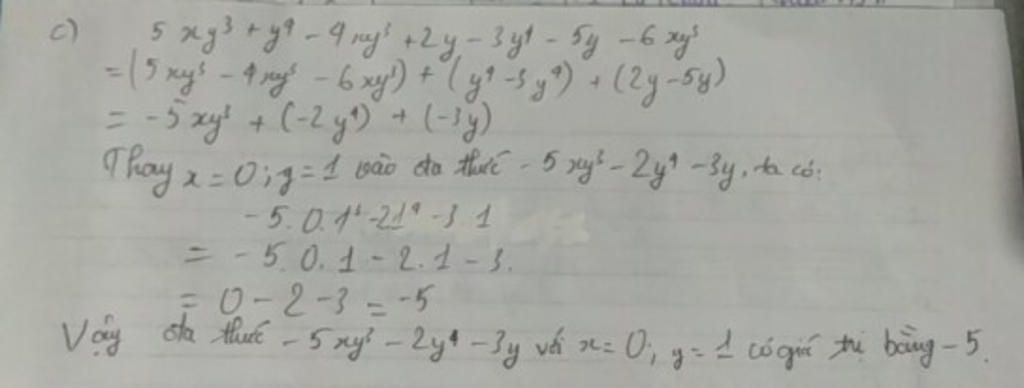 c) 5xy³ + y⁴ - 4xy³ + 2y - 3y⁴ - 5y - 6xy³
= (5xy³ - 4xy³ - 6xy³) + (y⁴ - 3y⁴) + (2y - 5y)
= -5xy³ + (-2y⁴) + (-3y)
Thay x = 0; y = 1 vào đa thức -5xy³ - 2y⁴ - 3y, ta có:
-5.0.1³ - 2.1⁴ - 3.1
= -5.0.1 - 2.1 - 3.
= 0 - 2 - 3 = -5
Vậy đa thức -5xy³ - 2y⁴ - 3y với x = 0; y = 1 có giá trị bằng -5.